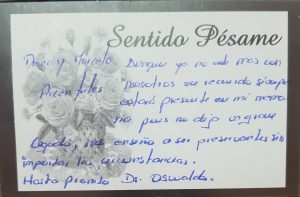 Sentido Pésame
Diana y Marcelo Aunque ya no esté más con
nosotros su recuerdo siempre
estará presente en mi memo
ria, pues nos dejo un gran
Legado, nos enseño a ser perseverantes sin
importar las circunstancias.
Hasta pronto Dr. Oswaldo.